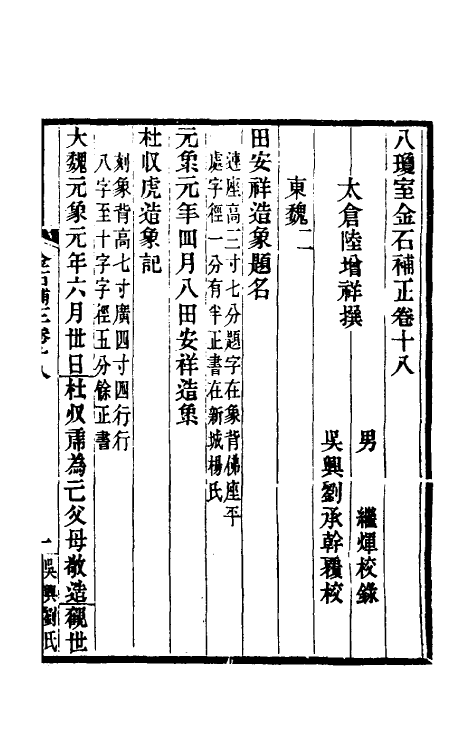 八瓊室金石補正卷十八
太倉陸增祥撰
男 繼煇校錄
吳興劉承幹覆校
東魏二
田安祥造象題名
連座高三寸七分題字在象背佛座平
處字徑一分有半正書在新城楊氏
元象元年四月八田安祥造象
杜収虎造象記
刻象背高七寸廣四寸四行行
八字至十字字徑五分餘正書
大魏元象元年六月丗日杜収虎為亡父母敬造觀世
金石補正卷十八
一
吳興劉氏